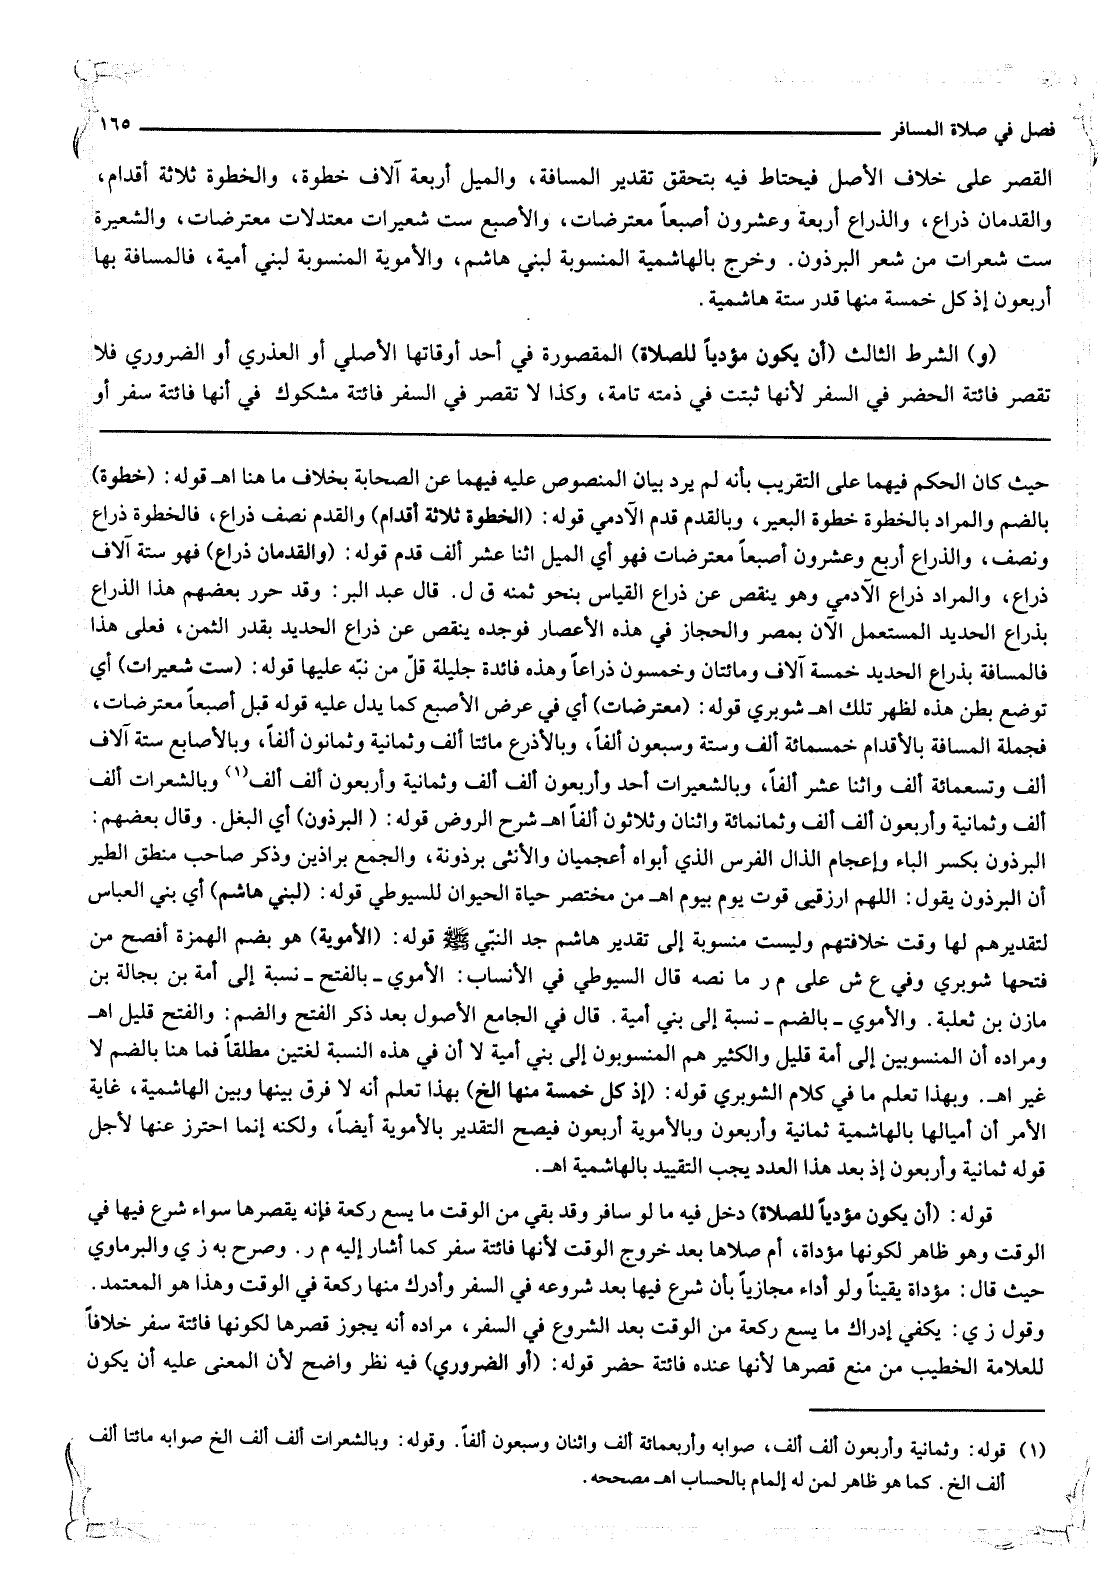 فصل في صلاة المسافر ١٦٥
القصر على خلاف الأصل فيحتاط فيه بتحقق تقدير المسافة، والميل أربعة آلاف خطوة، والخطوة ثلاثة أقدام،
والقدمان ذراع، والذراع أربعة وعشرون أصبعاً معترضات، والأصبع ست شعيرات معتدلات معترضات، والشعيرة
ست شعرات من شعر البرذون. وخرج بالهاشمية المنسوبة لبني هاشم، والأموية المنسوبة لبني أمية، فالمسافة بها
أربعون إذ كل خمسة منها قدر ستة هاشمية.
(و) الشرط الثالث (أن يكون مؤدياً للصلاة) المقصورة في أحد أوقاتها الأصلي أو العذري أو الضروري فلا
تقصر فائتة الحضر في السفر لأنها ثبتت في ذمته تامة، وكذا لا تقصر في السفر فائتة مشكوك في أنها فائتة سفر أو
حيث كان الحكم فيهما على التقريب بأنه لم يرد بيان المنصوص عليه فيهما عن الصحابة بخلاف ما هنا اهـ قوله: (خطوة)
بالضم والمراد بالخطوة خطوة البعير، وبالقدم قدم الآدمي قوله: (الخطوة ثلاثة أقدام) والقدم نصف ذراع، فالخطوة ذراع
ونصف، والذراع أربع وعشرون أصبعاً معترضات فهو أي الميل اثنا عشر ألف قدم قوله: (والقدمان ذراع) فهو ستة آلاف
ذراع، والمراد ذراع الآدمي وهو ينقص عن ذراع القياس بنحو ثمنه ق ل. قال عبد البر: وقد حرر بعضهم هذا الذراع
بذراع الحديد المستعمل الآن بمصر والحجاز في هذه الأعصار فوجده ينقص عن ذراع الحديد بقدر الثمن، فعلى هذا
فالمسافة بذراع الحديد خمسة آلاف ومائتان وخمسون ذراعاً وهذه فائدة جليلة قلّ من نبّه عليها قوله: (ست شعيرات) أي
توضع بطن هذه لظهر تلك اهـ شوبري قوله: (معترضات) أي في عرض الأصبع كما يدل عليه قوله قبل أصبعاً معترضات،
فجملة المسافة بالأقدام خمسمائة ألف وستة وسبعون ألفاً، وبالأذرع مائتا ألف وثمانية وثمانون ألفاً، وبالأصابع ستة آلاف
ألف وتسعمائة ألف واثنا عشر ألفاً، وبالشعيرات أحد وأربعون ألف ألف وثمانية وأربعون ألف ألف(١) وبالشعرات ألف
ألف وثمانية وأربعون ألف ألف وثمانمائة واثنان وثلاثون ألفاً اهـ شرح الروض قوله: (البرذون) أي البغل. وقال بعضهم:
البرذون بكسر الباء وإعجام الذال الفرس الذي أبواه أعجميان والأنثى برذونة، والجمع براذين وذكر صاحب منطق الطير
أن البرذون يقول: اللهم ارزقيى قوت يوم بيوم اهـ من مختصر حياة الحيوان للسيوطي قوله: (لبني هاشم) أي بني العباس
لتقديرهم لها وقت خلافتهم وليست منسوبة إلى تقدير هاشم جد النبي ﷺ قوله: (الأموية) هو بضم الهمزة أفصح من
فتحها شوبري وفي ع ش على م ر ما نصه قال السيوطي في الأنساب: الأموي ـ بالفتح ـ نسبة إلى أمة بن بجالة بن
مازن بن ثعلبة. والأموي ـ بالضم ـ نسبة إلى بني أمية. قال في الجامع الأصول بعد ذكر الفتح والضم: والفتح قليل اهـ
ومراده أن المنسوبين إلى أمة قليل والكثير هم المنسوبون إلى بني أمية لا أن في هذه النسبة لغتين مطلقاً فما هنا بالضم لا
غير اهـ. وبهذا تعلم ما في كلام الشوبري قوله: (إذ كل خمسة منها الخ) بهذا تعلم أنه لا فرق بينها وبين الهاشمية، غاية
الأمر أن أميالها بالهاشمية ثمانية وأربعون وبالأموية أربعون فيصح التقدير بالأموية أيضاً، ولكنه إنما احترز عنها لأجل
قوله ثمانية وأربعون إذ بعد هذا العدد يجب التقييد بالهاشمية اهـ.
قوله: (أن يكون مؤدياً للصلاة) دخل فيه ما لو سافر وقد بقي من الوقت ما يسع ركعة فإنه يقصرها سواء شرع فيها في
الوقت وهو ظاهر لكونها مؤداة، أم صلاها بعد خروج الوقت لأنها فائتة سفر كما أشار إليه م ر. وصرح به ز ي والبرماوي
حيث قال: مؤداة يقيناً ولو أداء مجازياً بأن شرع فيها بعد شروعه في السفر وأدرك منها ركعة في الوقت وهذا هو المعتمد.
وقول ز ي: يكفي إدراك ما يسع ركعة من الوقت بعد الشروع في السفر، مراده أنه يجوز قصرها لكونها فائتة سفر خلافاً
للعلامة الخطيب من منع قصرها لأنها عنده فائتة حضر قوله: (أو الضروري) فيه نظر واضح لأن المعنى عليه أن يكون
(١) قوله: وثمانية وأربعون ألف ألف، صوابه وأربعمائة ألف واثنان وسبعون ألفاً. وقوله: وبالشعرات ألف ألف الخ صوابه مائتا ألف
ألف الخ. كما هو ظاهر لمن له إلمام بالحساب اهـ مصححه.